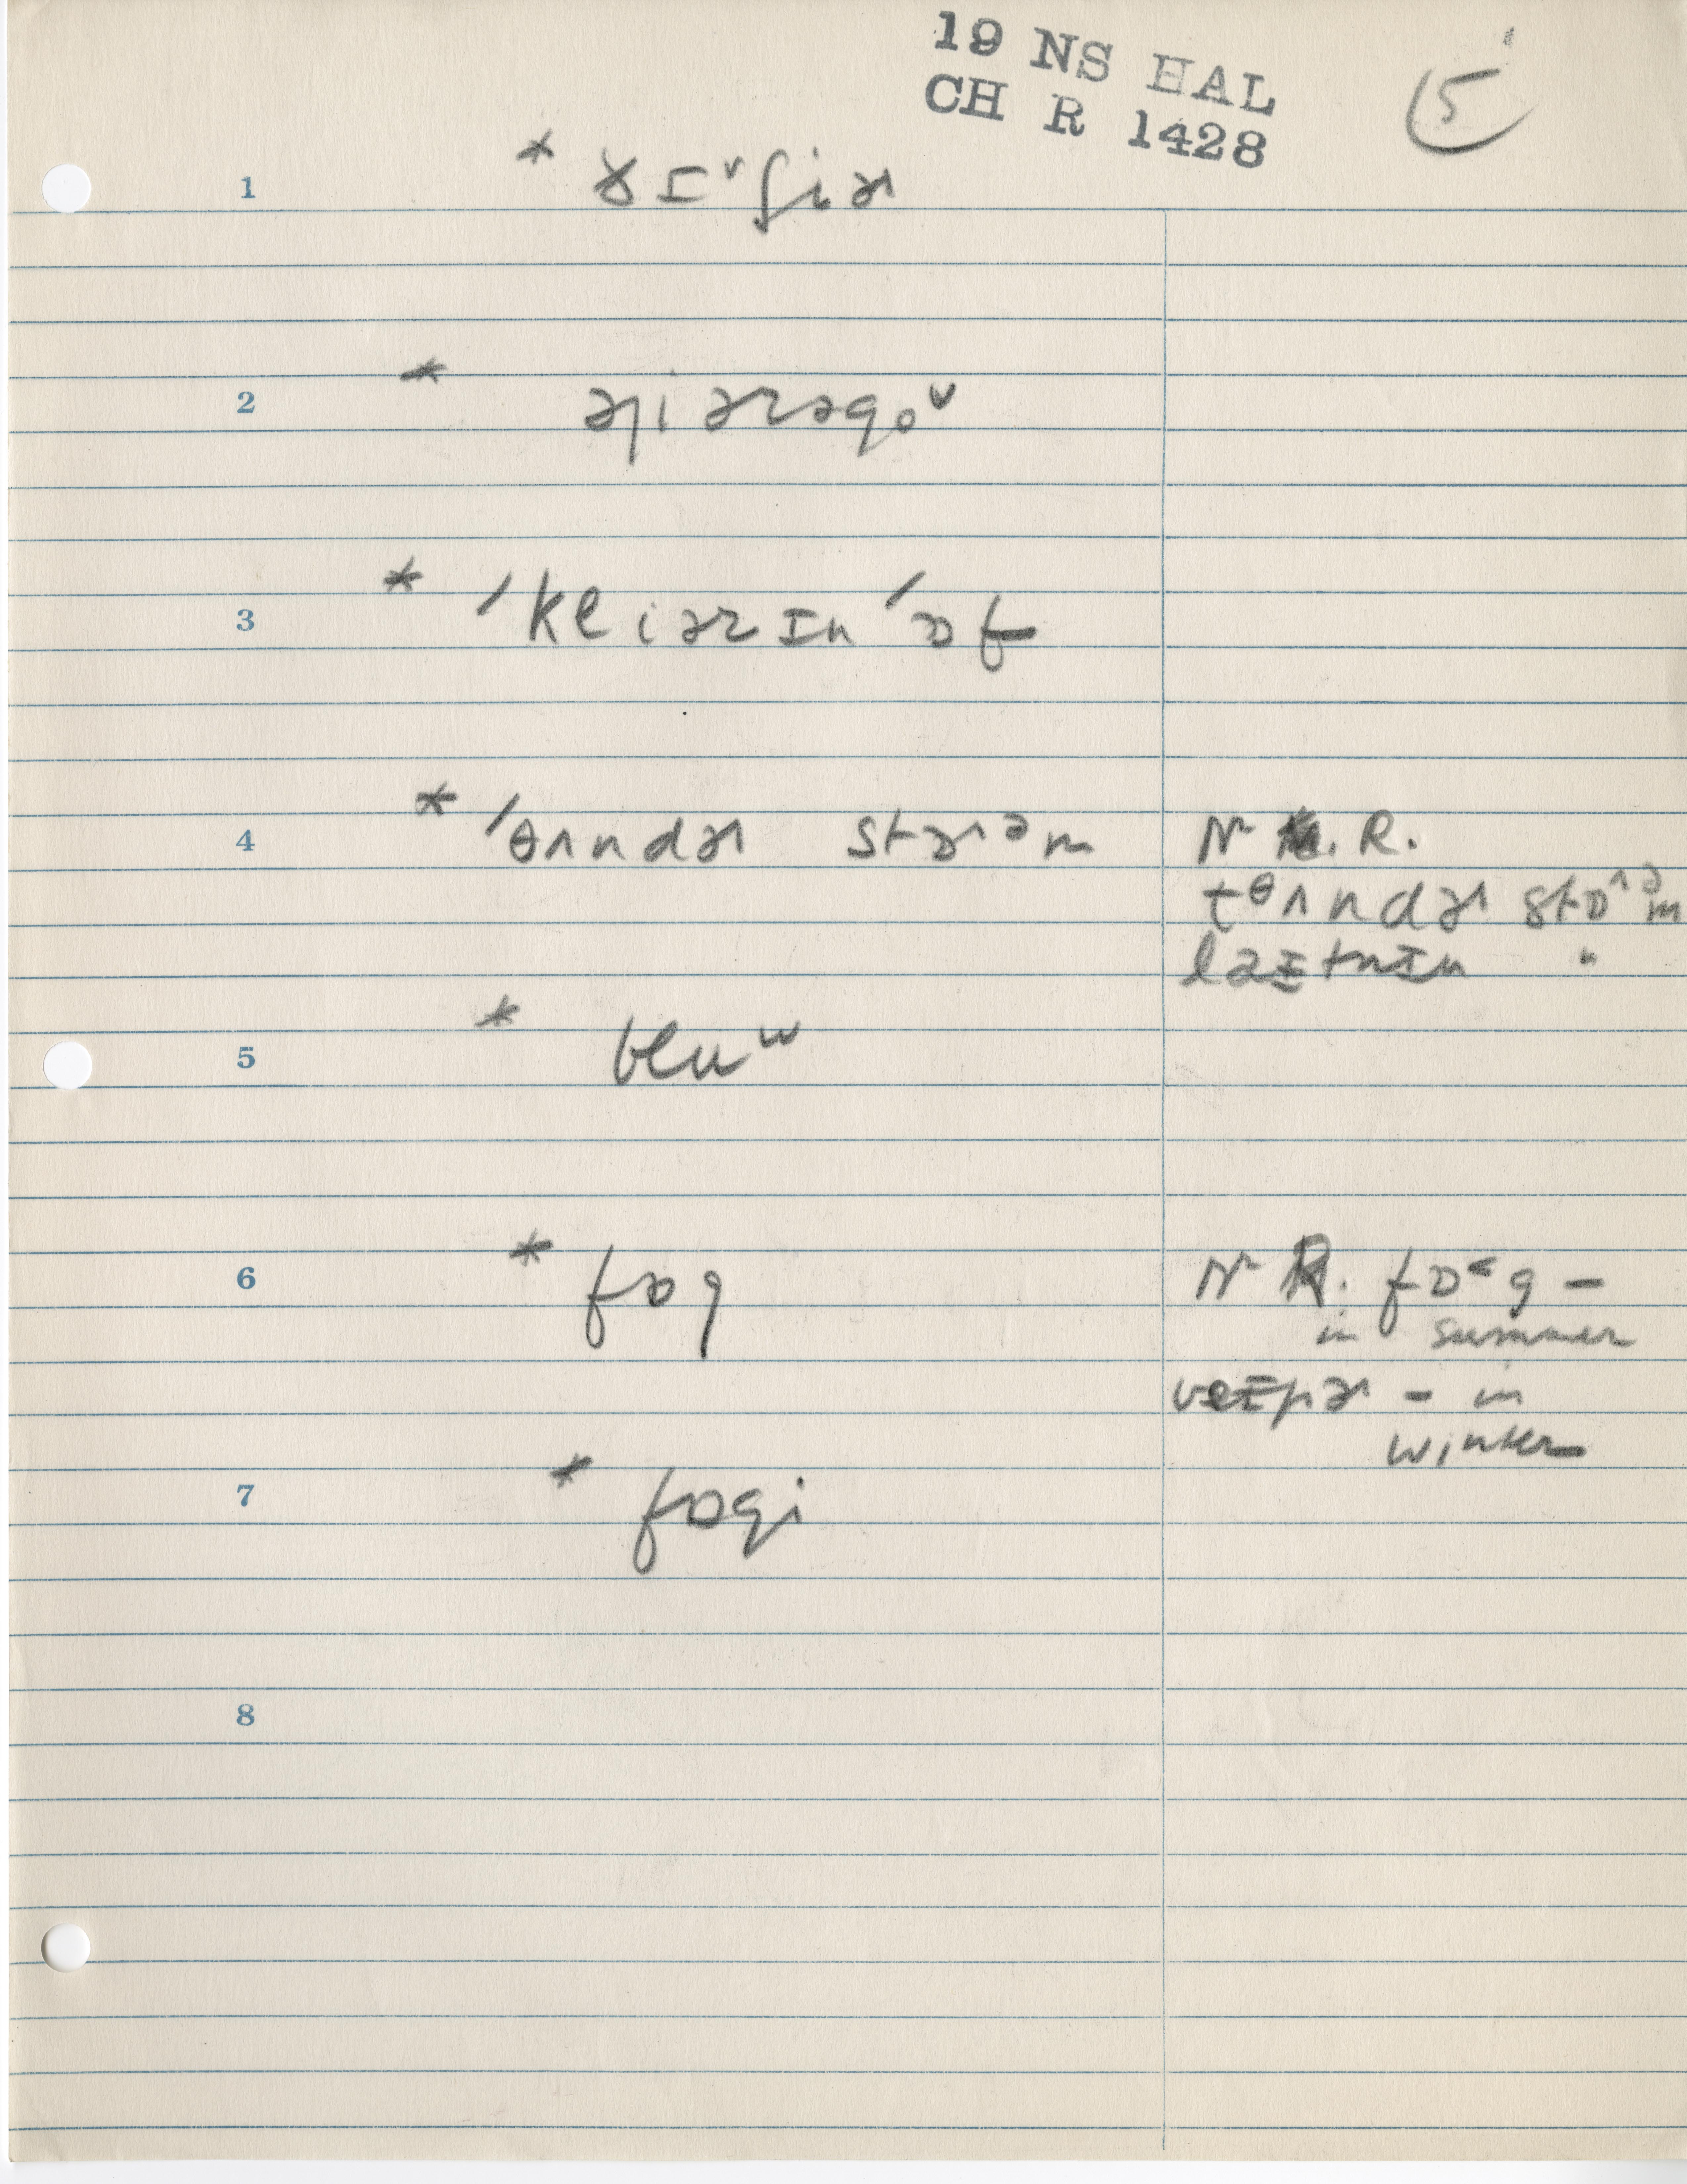 19 NS HAL
CH R 1428
5
1 * ðɪˇs jiɚ
2 * əjiɚzəgoˇ
3 * ˈkliɚɪnˈɒf
4 * ˈθʌndɚ stɒɚᵊm
N R.
tᶿʌndɚ stɒɚᵊm
laɪtnɪn "
5 * bluʷ
6 * fɒg
N R. fɒ˂g –
in summer
veɪpɚ – in
winter
7 * fɒgi
8